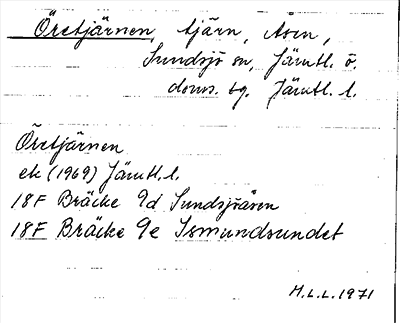 Öretjärnen, tjärn, Åsen,
Sundsjö sn, Jämtl. ö.
doms. tg. Jämtl. l.
Öretjärnen
ek (1969) Jämtl. l.
18F Bräcke 9d Sundsjöåsen
18F Bräcke 9e Ismundsundet
H.L.L. 1971